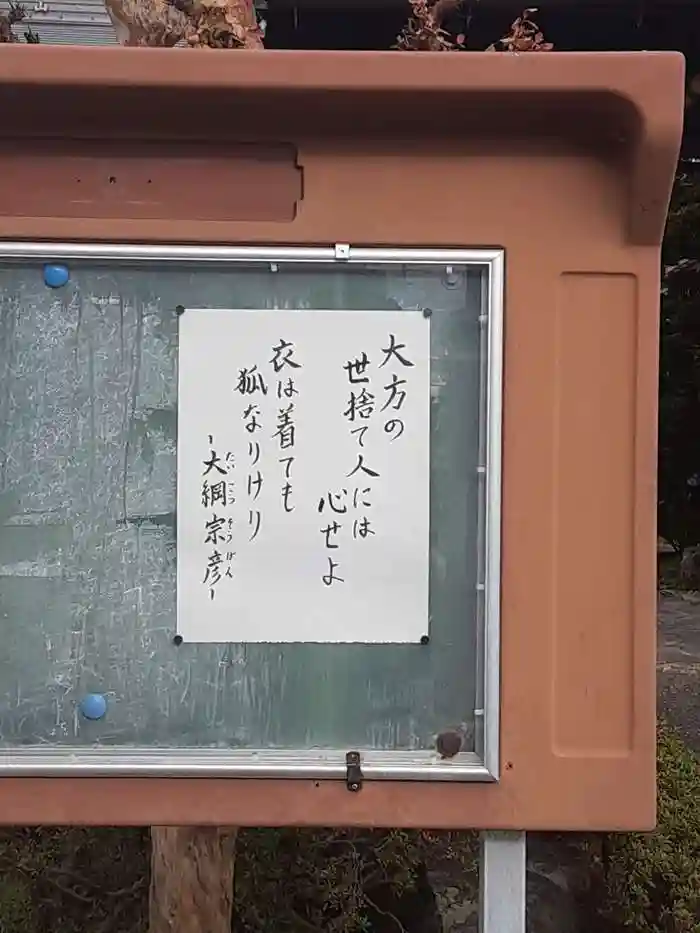 大方の
世捨て人には
心せよ
衣は着ても
狐なりけり
-大綱宗彦-
たいこうそうげん